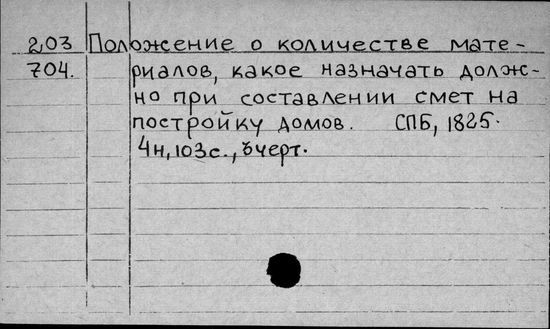 203 Положение о количестве мате-
704. риалов, какое назначать долж-
но при составлении смет на
постройку домов. СПБ, 1825.
4н, 103с., ъчерт.